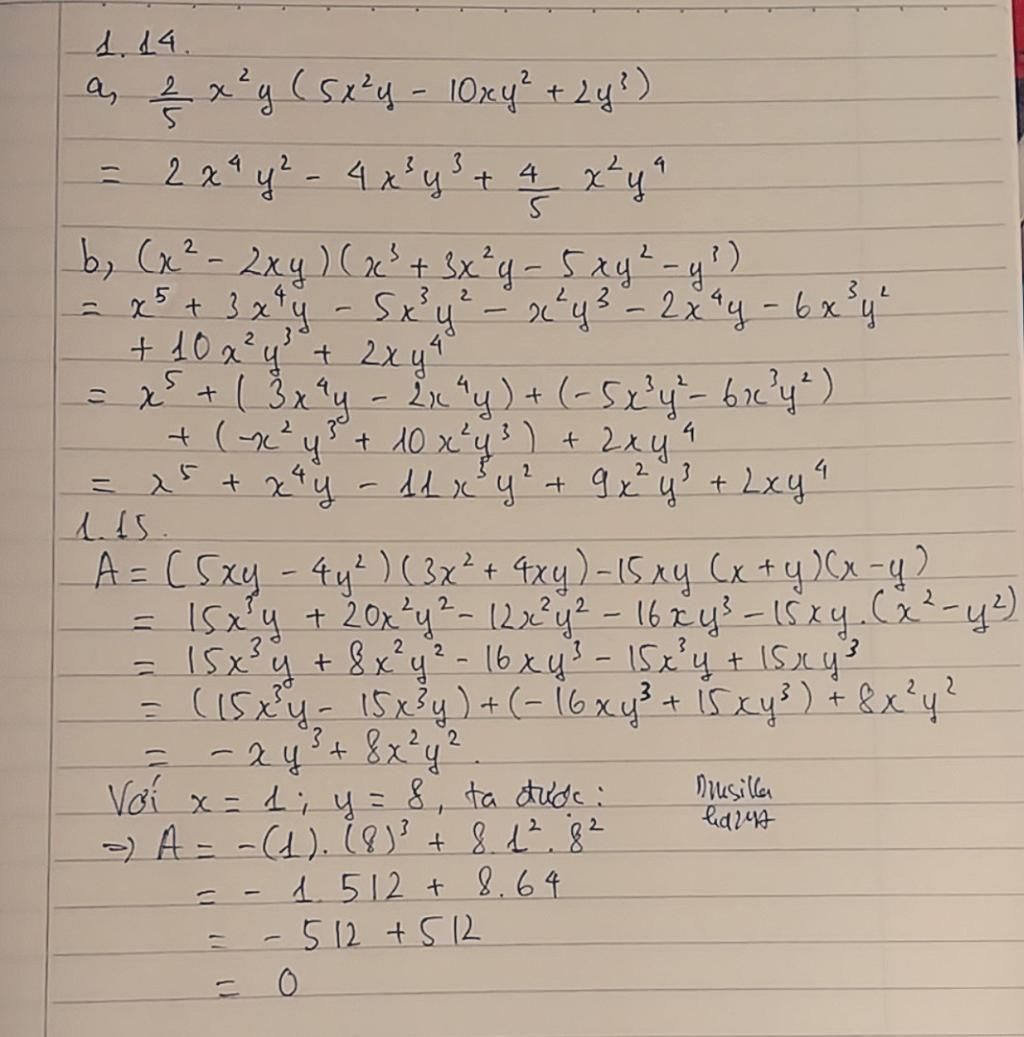 1.14.
a, 2/5 x²y (5x²y - 10xy² + 2y³)
= 2x⁴y² - 4x³y³ + 4/5 x²y⁴
b, (x² - 2xy)(x³ + 3x²y - 5xy² - y³)
= x⁵ + 3x⁴y - 5x³y² - x²y³ - 2x⁴y - 6x³y²
+ 10x²y³ + 2xy⁴
= x⁵ + (3x⁴y - 2x⁴y) + (-5x³y² - 6x³y²)
+ (-x²y³ + 10x²y³) + 2xy⁴
= x⁵ + x⁴y - 11x³y² + 9x²y³ + 2xy⁴
1.15.
A = (5xy - 4y²)(3x² + 4xy) - 15xy (x + y)(x - y)
= 15x³y + 20x²y² - 12x²y² - 16xy³ - 15xy.(x² - y²)
= 15x³y + 8x²y² - 16xy³ - 15x³y + 15xy³
= (15x³y - 15x³y) + (-16xy³ + 15xy³) + 8x²y²
= -xy³ + 8x²y².
Với x = 1; y = 8, ta được:
⇒ A = -(1).(8)³ + 8.1².8²
= - 1.512 + 8.64
= - 512 + 512
= 0